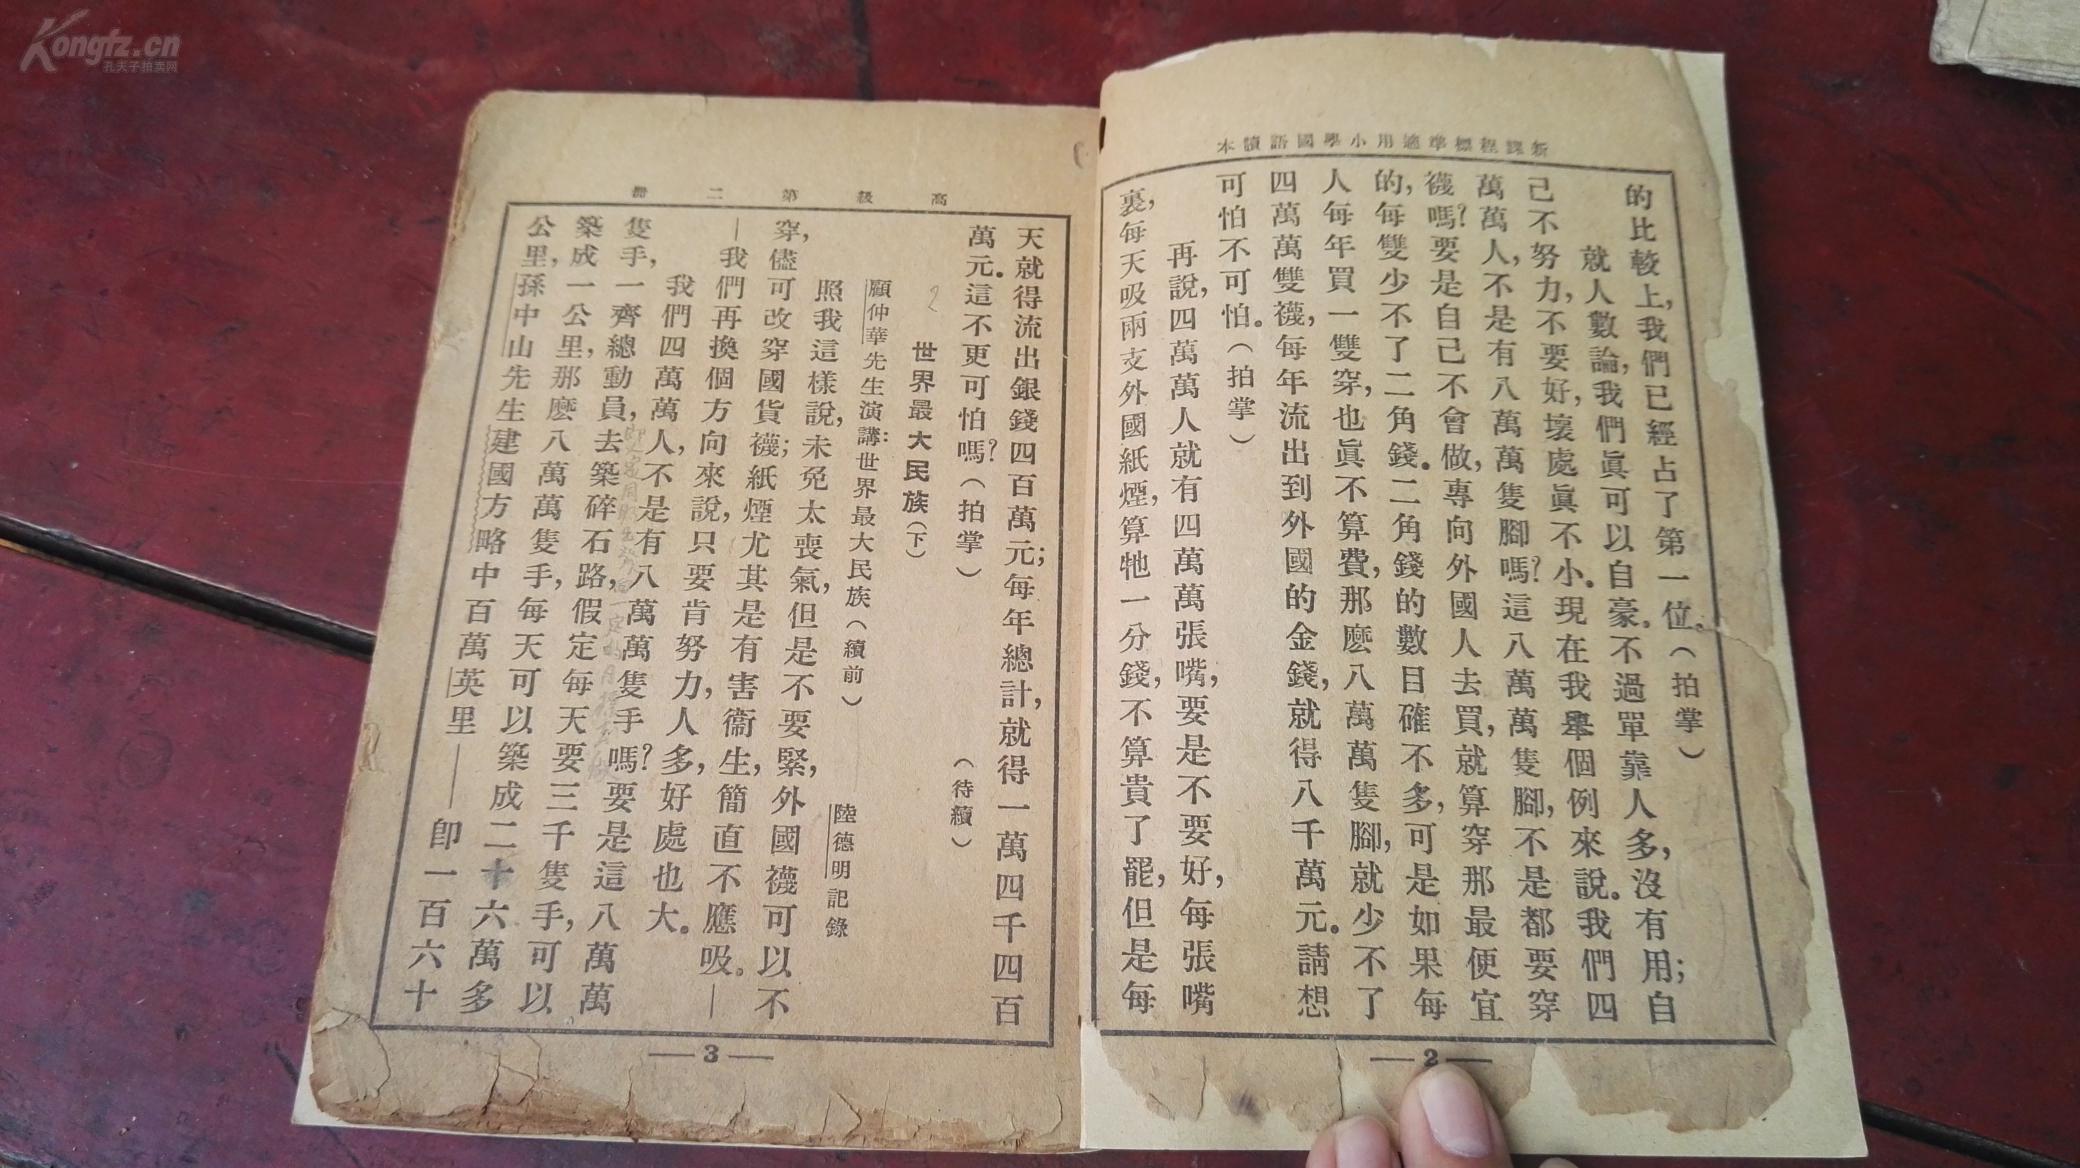 Kongfz.cn
孔夫子拍卖网
新課程標準適用小學國語讀本
的比較上，我們已經占了第一位。（拍掌）
就人數論，我們眞可以自豪。不過單靠人多，沒有用；自
己不努力，不要好，壞處眞不小。現在我舉個例來說。我們四
萬萬人，不是有八萬萬隻腳嗎？這八萬萬隻腳，不是都要穿
襪嗎？要是自己不會做，專向外國人去買，就算穿那最便宜
的，每雙少不了二角錢。二角錢的數目確不多，可是如果每
人每年買一雙穿，也眞不算費，那麽八萬萬隻腳，就少不了
四萬萬雙襪，每年流出到外國的金錢，就得八千萬元。請想
可怕不可怕。（拍掌）
再說，四萬萬人就有四萬萬張嘴，要是不要好，每張嘴
裏，每天吸兩支外國紙煙，算牠一分錢，不算貴了罷，但是每
2
高級第二冊
天就得流出銀錢四百萬元；每年總計，就得一萬四千四百
萬元。這不更可怕嗎？（拍掌）
（待續）
2
世界最大民族（下）
顧仲華先生演講：世界最大民族（續前）
陸德明記錄
照我這樣說，未免太喪氣，但是不要緊，外國襪可以不
穿，儘可改穿國貨襪；紙煙尤其是有害衞生，簡直不應吸。—
—我們再換個方向來說，只要肯努力，人多，好處也大。
我們四萬萬人，不是有八萬萬隻手嗎？要是這八萬萬
隻手，一齊總動員，去築碎石路，假定每天要三千隻手，可以
築成一公里，那麽八萬萬隻手，每天可以築成二十六萬多
公里，孫中山先生建國方略中百萬英里——卽一百六十
3